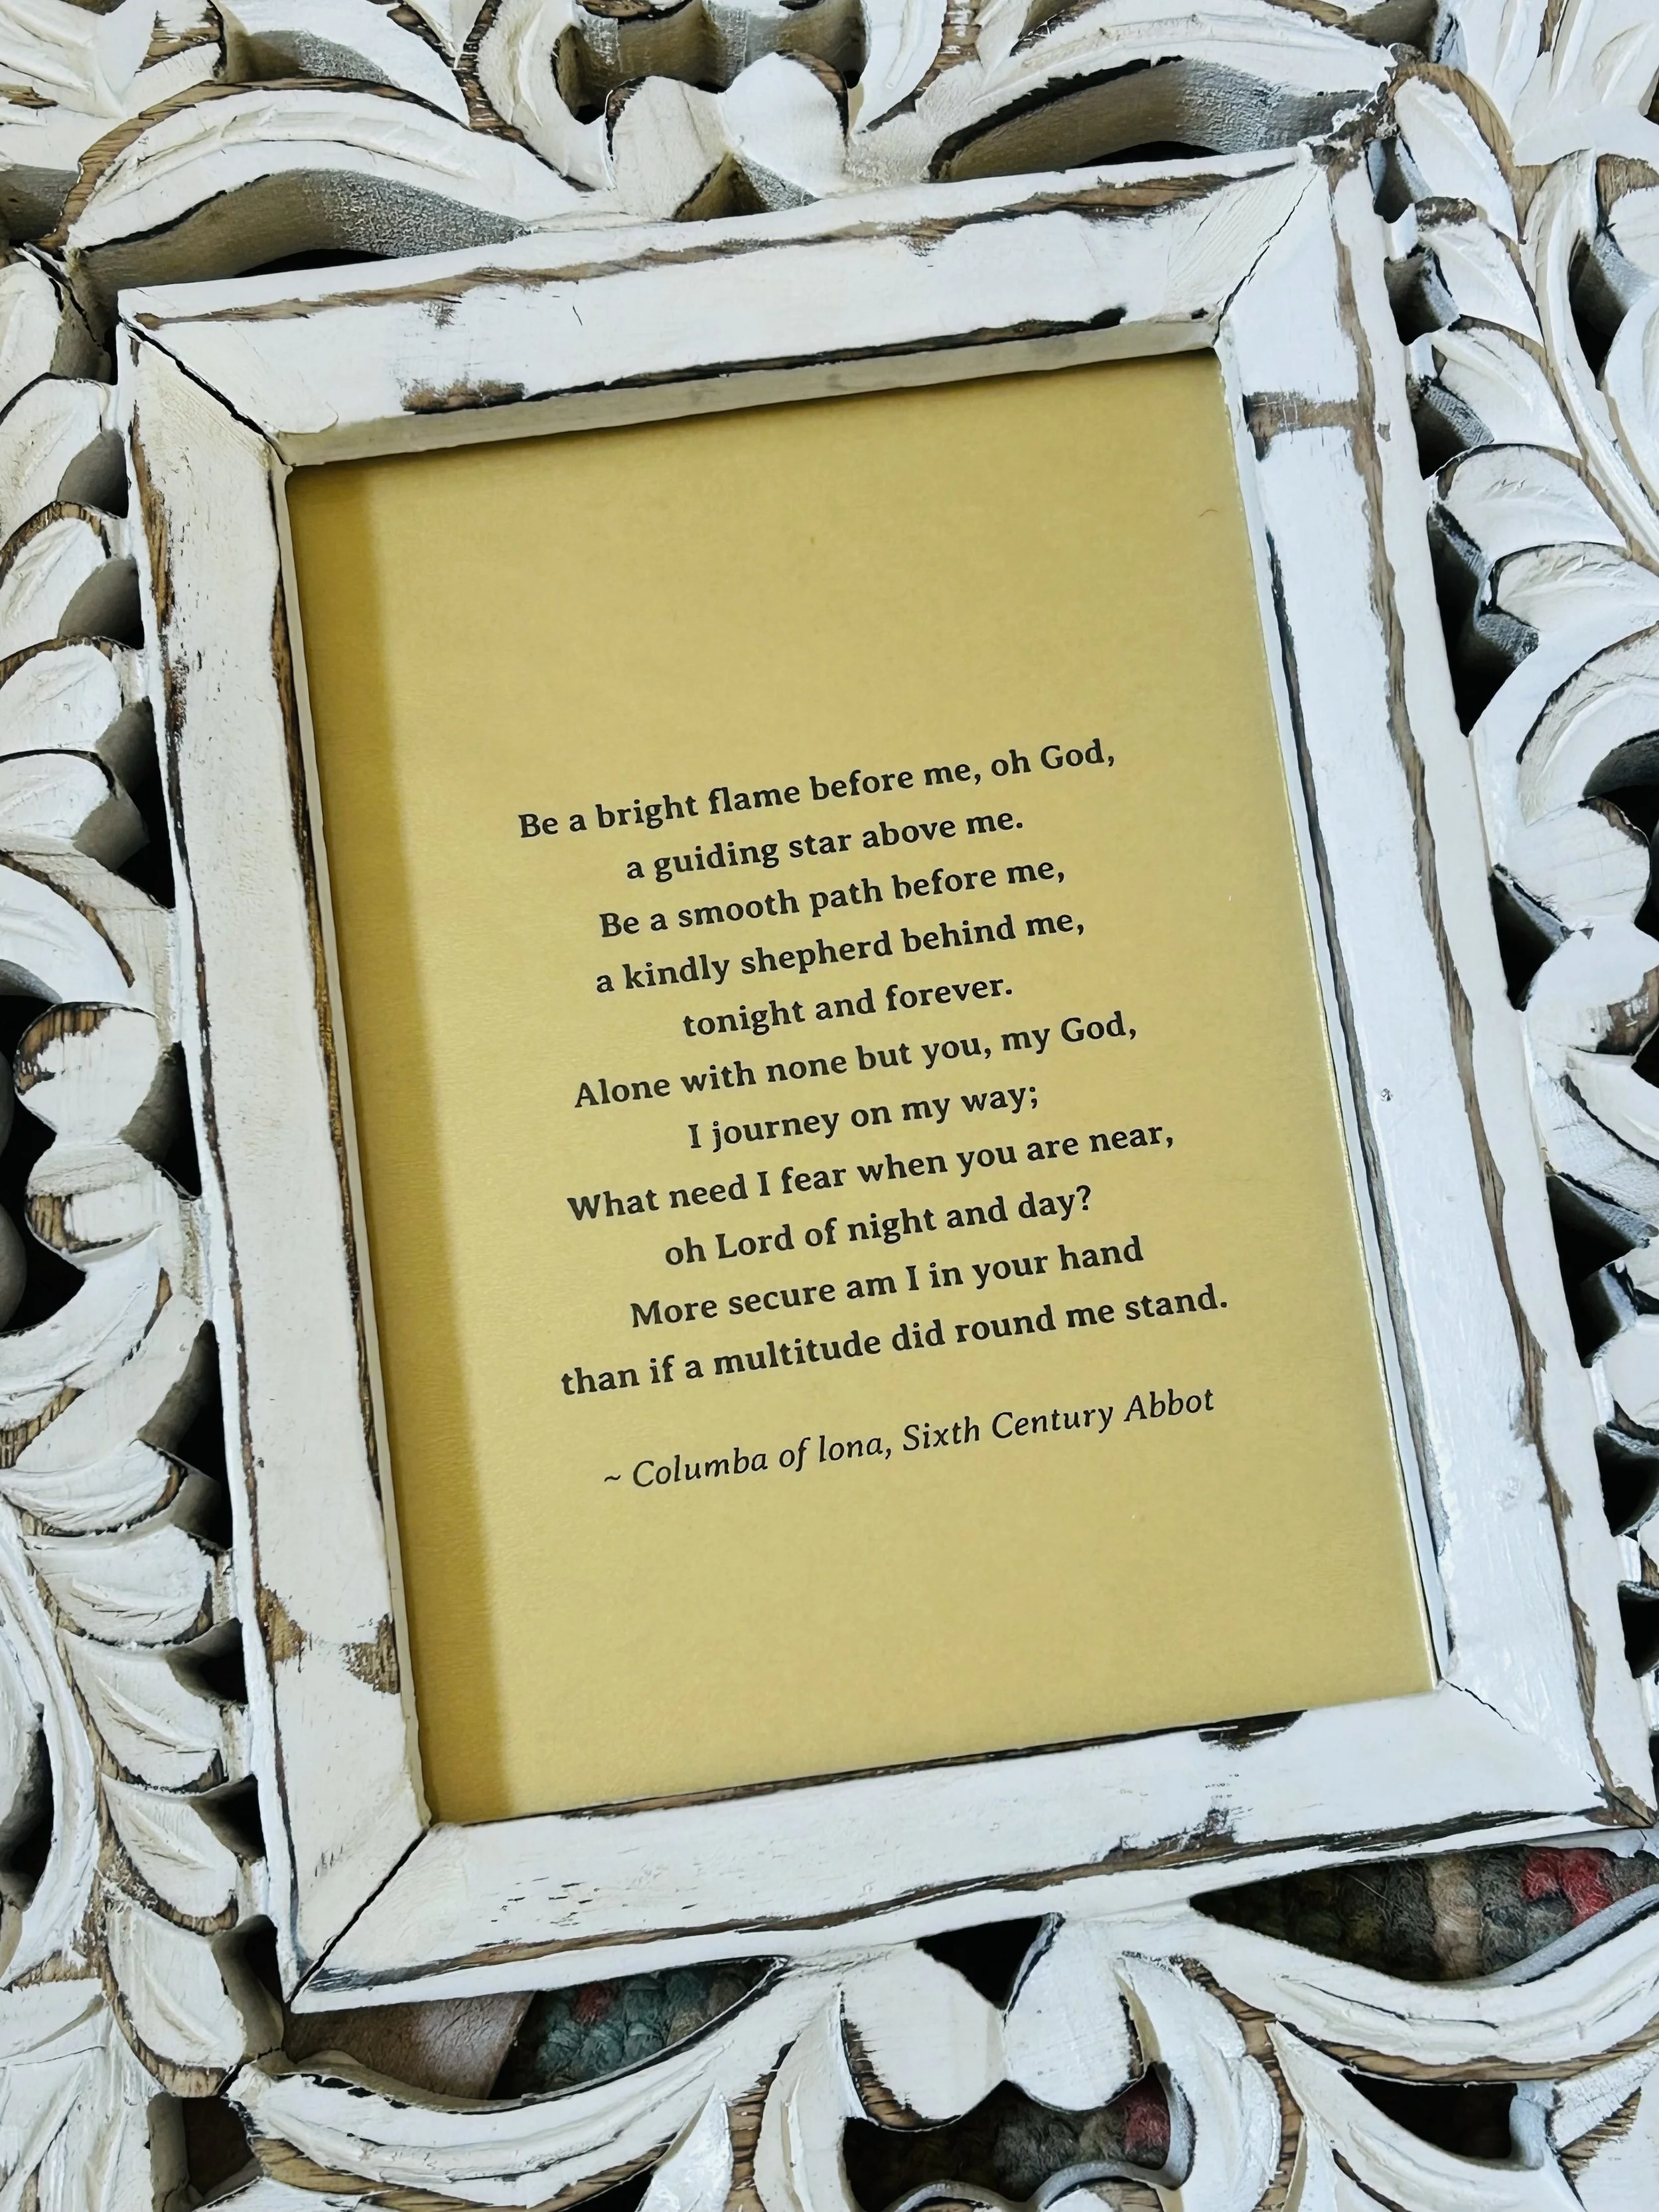 Be a bright flame before me, oh God,
a guiding star above me.
Be a smooth path before me,
a kindly shepherd behind me,
tonight and forever.
Alone with none but you, my God,
I journey on my way;
What need I fear when you are near,
oh Lord of night and day?
More secure am I in your hand
than if a multitude did round me stand.
~ Columba of lona, Sixth Century Abbot